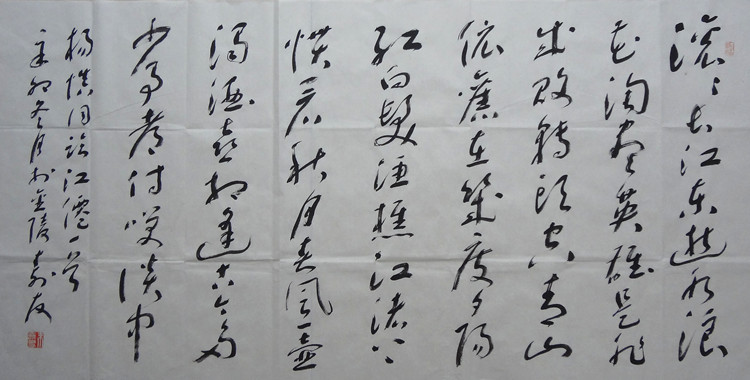 滚〻长江东逝水浪
花淘尽英雄是非
成败转头空青山
依舊在幾度夕陽
红白髮渔樵江渚上
惯看秋月春风一壶
濁酒喜相逢古今多
少事都付笑谈中
杨慎词临江僊一首
辛卯冬月於金陵